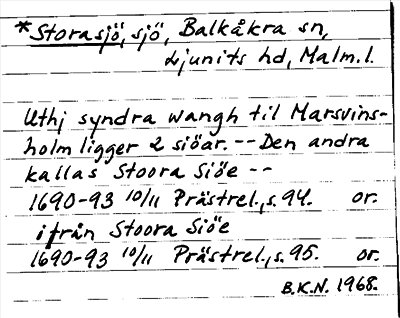 *Storasjö, sjö, Balkåkra sn,
Ljunits hd, Malm.l.
Uthj syndra wangh til Marsvins-
holm ligger 2 siöar. -- Den andra
kallas Stoora Siöe --
1690-93 10/11 Prästrel., s. 94. or.
ifrån Stoora Siöe
1690-93 10/11 Prästrel., s. 95. or.
B.K.N. 1968.